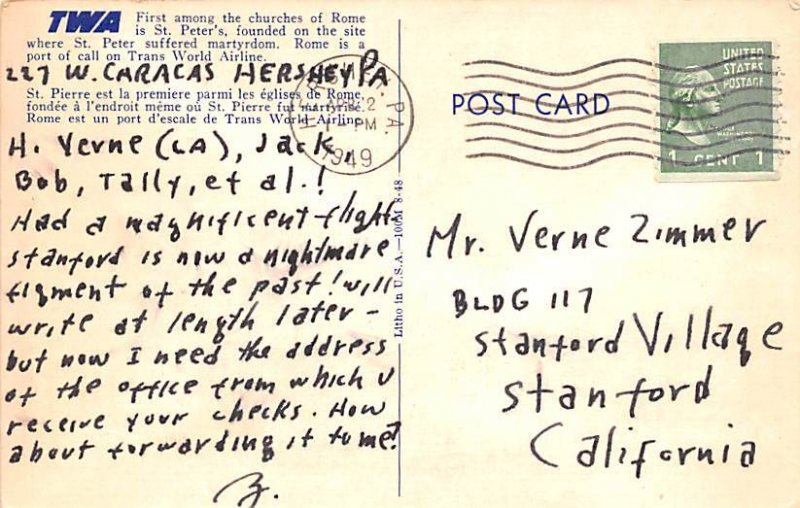 TWA First among the churches of Rome
is St. Peter's, founded on the site
where St. Peter suffered martyrdom. Rome is a
port of call on Trans World Airline.
227 W. CARACAS HERSHEY PA
St. Pierre est la premiere parmi les églises de Rome,
fondée à l'endroit même où St. Pierre fut martyrisé.
Rome est un port d'escale de Trans World Airline.
H. Verne (LA), Jack,
Bob, Tally, et al.!
Had a magnificent flight.
Stanford is now a nightmare
figment of the past! will
write at length later -
but now I need the address
of the office from which U
receive your checks. How
about forwarding it to me?
Z.
Litho in U.S.A.—100M 8-48
PA.
2
PM
1949
POST CARD
UNITED
STATES
POSTAGE
1 CENT 1
Mr. Verne Zimmer
BLDG 117
Stanford Village
Stanford
California